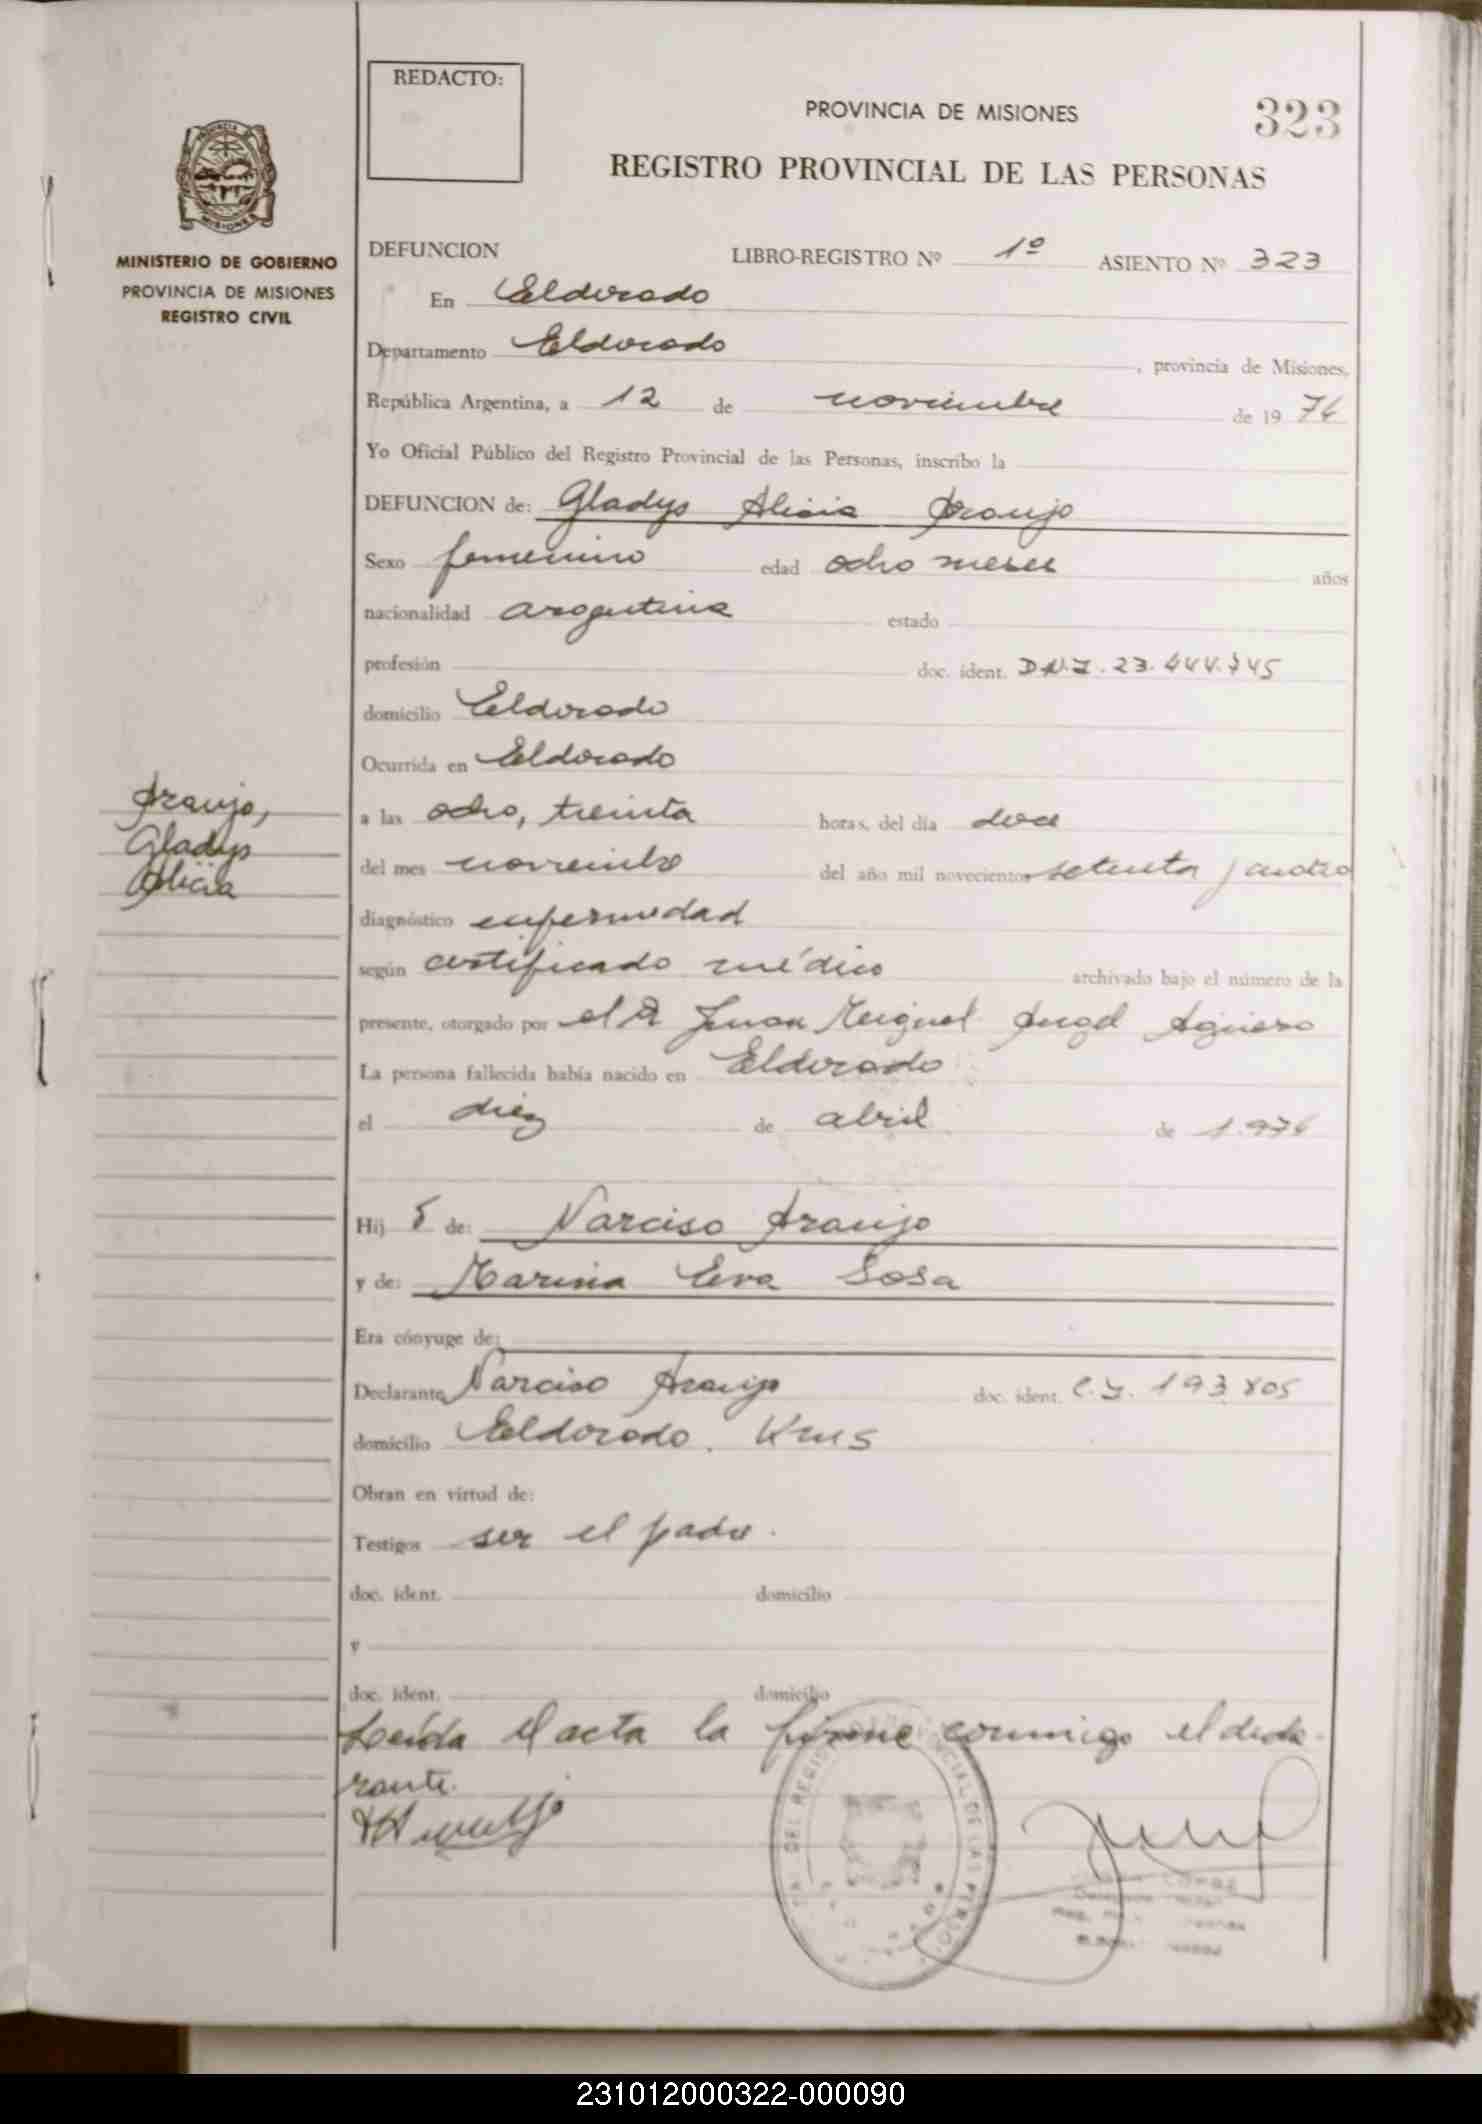 REDACTO:
PROVINCIA DE MISIONES
323
REGISTRO PROVINCIAL DE LAS PERSONAS
MINISTERIO DE GOBIERNO
PROVINCIA DE MISIONES
REGISTRO CIVIL
DEFUNCION LIBRO-REGISTRO Nº 1º ASIENTO Nº 323
En Eldorado
Departamento Eldorado, provincia de Misiones,
República Argentina, a 12 de noviembre de 1974
Yo Oficial Público del Registro Provincial de las Personas, inscribo la
DEFUNCION de: Gladys Alicia Araujo
Sexo femenino edad ocho meses años
nacionalidad argentina estado
profesión doc. ident. D.N.I. 23.444.745
domicilio Eldorado
Ocurrida en Eldorado
Araujo,
Gladys
Alicia
a las ocho, treinta horas, del día doce
del mes noviembre del año mil novecientos setenta y cuatro
diagnóstico enfermedad
según certificado médico archivado bajo el número de la
presente, otorgado por el Dr Juan Miguel Angel Agüero
La persona fallecida había nacido en Eldorado
el diez de abril de 1.974
Hij de: Narciso Araujo
y de: Marina Eva Sosa
Era cónyuge de:
Declarante Narciso Araujo doc. ident. C.I. 193.805
domicilio Eldorado. Km 5
Obran en virtud de:
Testigos ser el padre.
doc. ident. domicilio
y
doc. ident. domicilio
Leída el acta la firme conmigo el decla-
rante.
231012000322-000090